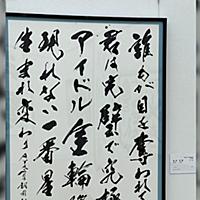 誰もが目を奪われて
君は完璧で究極
アイドル金輪際
現れない一番星
生まれ変わり